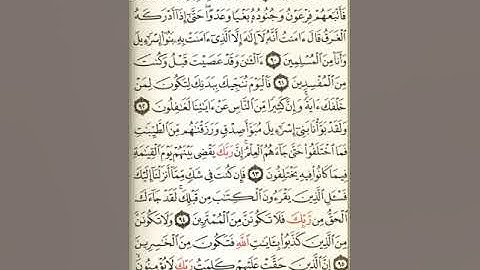 فَأَتْبَعَهُمْ فِرْعَوْنُ وَجُنُودُهُۥ بَغْيًا وَعَدْوًا ۖ حَتَّىٰٓ إِذَآ أَدْرَكَهُ
ٱلْغَرَقُ قَالَ ءَامَنتُ أَنَّهُۥ لَآ إِلَٰهَ إِلَّا ٱلَّذِىٓ ءَامَنَتْ بِهِۦ بَنُوٓا۟ إِسْرَٰٓءِيلَ
وَأَنَا۠ مِنَ ٱلْمُسْلِمِينَ ٩٠ ءَآلْـَٰٔنَ وَقَدْ عَصَيْتَ قَبْلُ وَكُنتَ
مِنَ ٱلْمُفْسِدِينَ ٩١ فَٱلْيَوْمَ نُنَجِّيكَ بِبَدَنِكَ لِتَكُونَ لِمَنْ
خَلْفَكَ ءَايَةً ۚ وَإِنَّ كَثِيرًا مِّنَ ٱلنَّاسِ عَنْ ءَايَٰتِنَا لَغَٰفِلُونَ ٩٢
وَلَقَدْ بَوَّأْنَا بَنِىٓ إِسْرَٰٓءِيلَ مُبَوَّأَ صِدْقٍ وَرَزَقْنَٰهُم مِّنَ ٱلطَّيِّبَٰتِ
فَمَا ٱخْتَلَفُوا۟ حَتَّىٰ جَآءَهُمُ ٱلْعِلْمُ ۚ إِنَّ رَبَّكَ يَقْضِى بَيْنَهُمْ يَوْمَ ٱلْقِيَٰمَةِ
فِيمَا كَانُوا۟ فِيهِ يَخْتَلِفُونَ ٩٣ فَإِن كُنتَ فِى شَكٍّ مِّمَّآ أَنزَلْنَآ إِلَيْكَ
فَسْـَٔلِ ٱلَّذِينَ يَقْرَءُونَ ٱلْكِتَٰبَ مِن قَبْلِكَ ۚ لَقَدْ جَآءَكَ
ٱلْحَقُّ مِن رَّبِّكَ فَلَا تَكُونَنَّ مِنَ ٱلْمُمْتَرِينَ ٩٤ وَلَا تَكُونَنَّ
مِنَ ٱلَّذِينَ كَذَّبُوا۟ بِـَٔايَٰتِ ٱللَّهِ فَتَكُونَ مِنَ ٱلْخَٰسِرِينَ
٩٥ إِنَّ ٱلَّذِينَ حَقَّتْ عَلَيْهِمْ كَلِمَتُ رَبِّكَ لَا يُؤْمِنُونَ